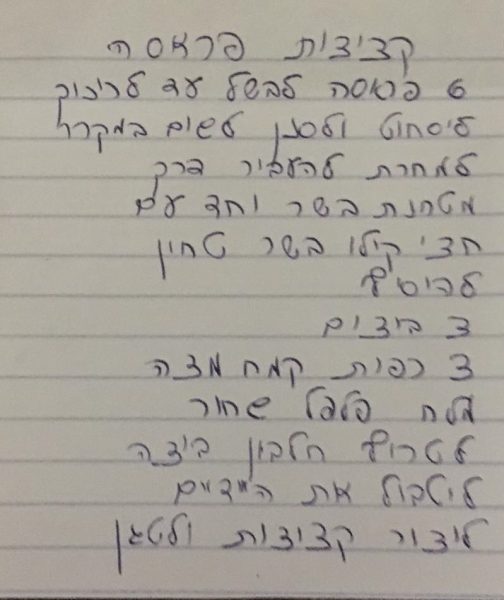 קציצות פראסה
6 פראסה לבשל עד לריכוך
לסחוט ולסנן לשים במקרר
למחרת להעביר דרך
מטחנת בשר יחד עם
חצי קילו בשר טחון
להוסיף
3 ביצים
3 כפות קמח מצה
מלח פלפל שחור
לטרוף חלבון ביצה
לטבול את הידיים
ליצור קציצות ולטגן